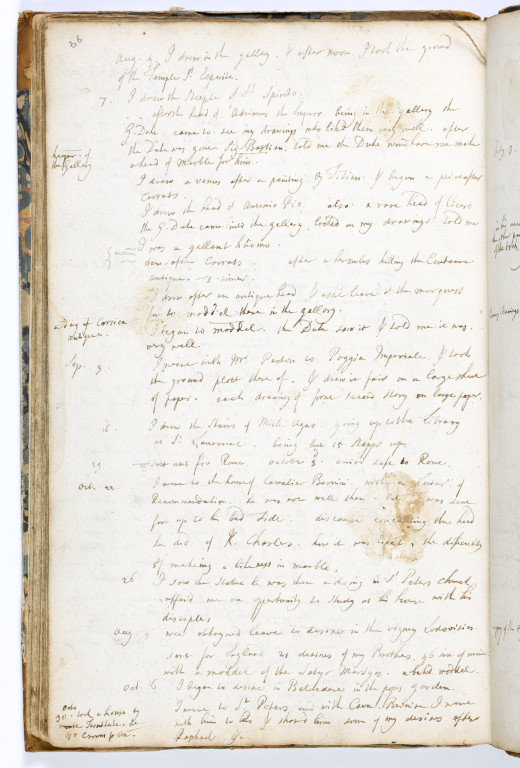 36
Aug. 9. I drew in the gallery. & after noon I took the ground
of the Temple St. Esperite.
7. I drew the steeple of St. Spirito.
afters head of Adrianus the Emperor being in the gallery the
G. Duke came to see my drawings who lik'd them very well. after
the Duke was gone Sig. Bastian told me the Duke would have me make
keeper of
the Gallery
a head of Marble for him.
I drew a venus after a painting of Titian. & begun a peice after
Corrats.
I drew the head of Antonio Pio, also a rare head of Cicero
the G. Duke came into the gallery, looked on my drawings told me
I was a gallant huomo.
drew after Corrats after a hercules killing the Centaure
antique. 3 times
I drew after an antique head. & askt leave of the marquess
for to moddel there in the gallery.
a day of Corsica
antique.
I began to moddel. the Duke saw it & told me it was
very well.
Sep. 9. I went with Mr. Paston to Poggia Imperiale. & took
the ground plott there of. & drew it fair on a large sheet
of paper. each drawing of some second story on large paper.
I drew the Stairs of Mich. Agno. going up to the Library
at St. Laurence. being but 15 stepps up.
29 sett out for Rome. october 3d. arrived safe to Rome.
Oct. 22 I went to the house of Cavalier Bernini, with a letter of
Recommendation. he was not well then. but I was sent
for up to his bed side. discourse concerning the head
he did of K. Charles. how it was liked, & the difficulty
of making a likeness in marble,
26 I saw the statue he was then a doing in St. Peters church,
afford me an oportunity to study at his house with his
disciples
Aug. 3 wee obtayned leave to desine in the vigniy Lodovisio.
sent for England 21 desines of my Brothers, 46 six of mine
with a moddel of the Satyr Marsyas.
Oct. 6 I began to desine in Beldedeare in the popes Garden.
Octo
30. took a house by
mount Trinitale. at
40 Crowns p. an.
I went to St. Peters, and with Caval. Bernini I went
with him to his & shewd him some of my desines after
Raphael &c.